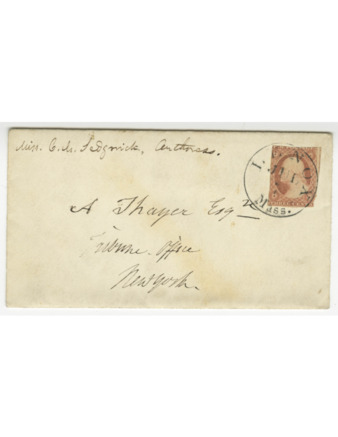 Miss. C. M. Sedgwick, Authoress.
LENOX
JUL 1
MASS.
A Thayer Esq
Tribune Office
New York.